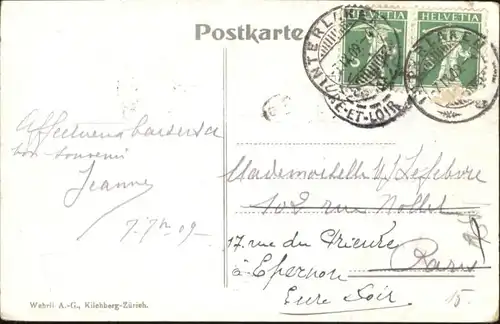 Postkarte
HELVETIA
HELVETIA
5
INTERLAKEN
INTERLAKEN
EURE-ET-LOIR
Affectueux baisers et
bon souvenir
Jeanne
7. 7bre 09
Mademoiselle Lefebvre
102 rue Nollet
Paris
17. rue du Prieuré
à Epernon
Eure Loir
15.
Wehrli A.-G., Kilchberg-Zürich.